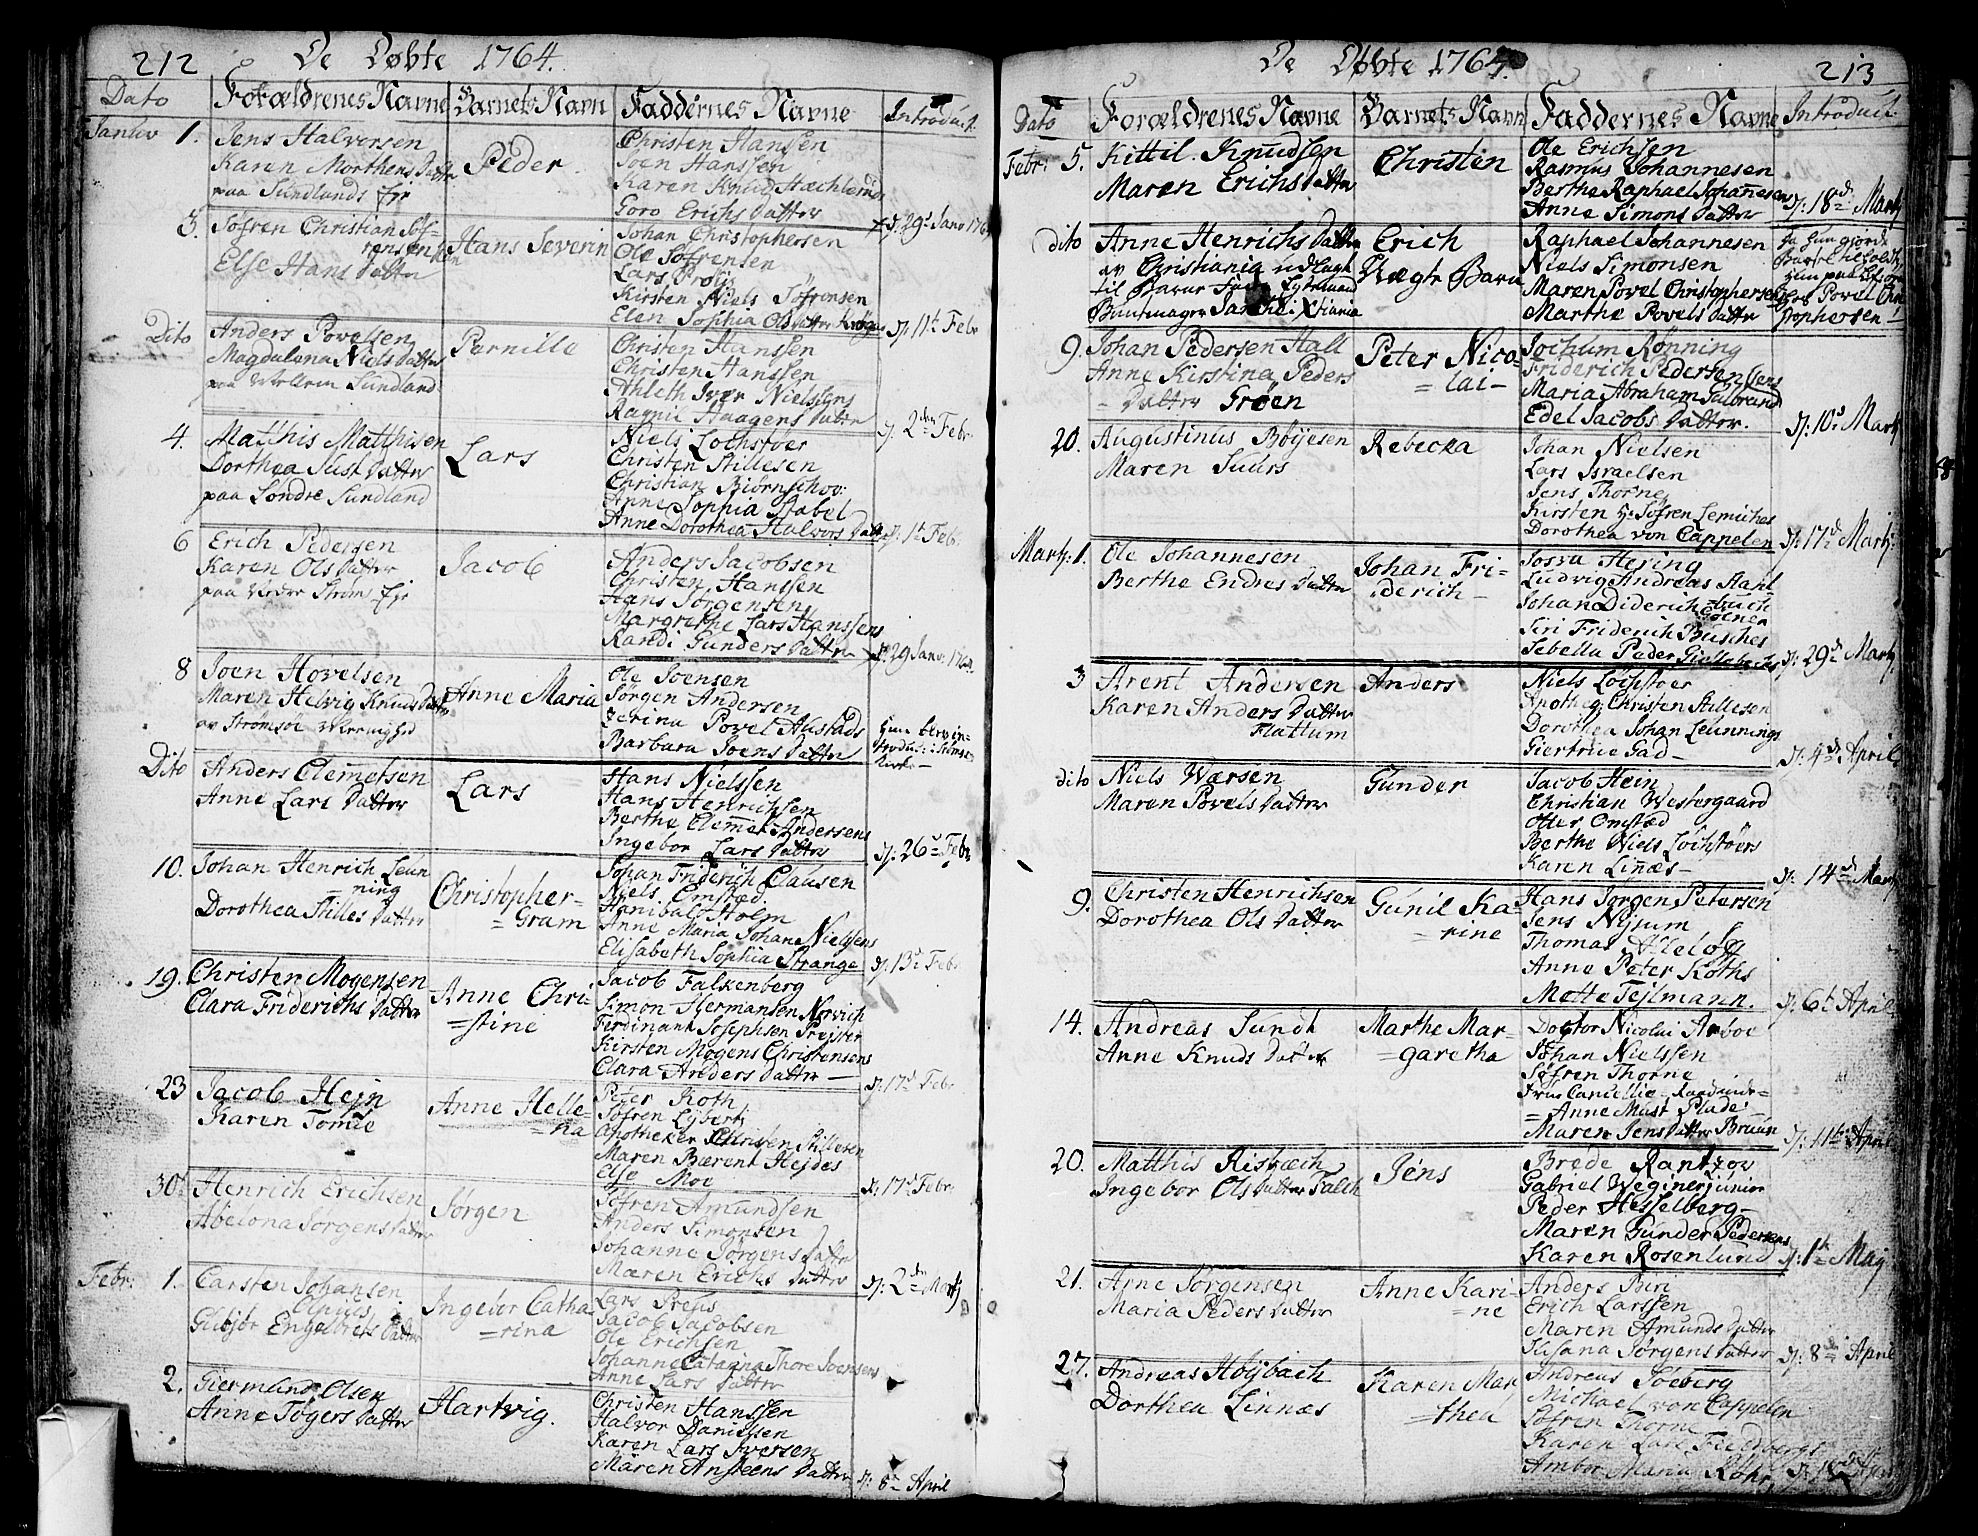 212
De Døbte 1764.
Dato
Forældrenes Navne
Barnets Navn
Faddernes Navne
Introduct:
Januv 1.
Jens Halversen
Karen Morthens Datter
paa Sundlands Eje
Peder
Christen Hanssen
Joen Hanssen
Karen Knud
Goro Erichs Datter
d: 29d Janv 176
3.
Søfren Christian Søf-
rensen
Else Hans Datter
Hans Severin
Johan Christophersen
Ole Søfrensen
Lars Prøjs
Kirsten Niels Søfrensen
Elen Sophia Ols Datter
d: 11t Febr
Dito
Anders Povelsen
Magdalena Niels Datter
paa Sundland
Pernille
Christen Hanssen
Christen Hanssen
Athleth Iver Nielssens
Ragnil Haagens Datter
d: 2den Febr
4.
Matthis Matthisen
Dorthea Just Datter
paa Søndre Sundland
Lars
Niels Lochstøer
Christen Stillesen
Christian Biørnschov:
Anne Sophia Stabel
Anne Dorothea Halvors Datter
d: 1t Feb.
6
Erich Pedersen
Karen Ols Datter
paa Strøm Eje
Jacob
Anders Jacobsen
Christen Hanssen
Hans Jørgensen
Margrethe Lars Hanssens
Randi Gunders Datter
d: 29 Janv: 1764
8
Joen Hovelsen
Maren Helvig Knuds Datter
av Strømsøe Menighed
Anne Maria
Ole Joensen
Jørgen Andersen
Zerina Povel Austads
Barbara Joens Datter
Dito
Anders Clemetsen
Anne Lars Datter
Lars
Hans Nielssen
Hans Henrichsen
Berthe Clemet Andersens
Ingebor Lars Datter
d: 26d Febr
10.
Johan Henrich Leun
=ning
Dorothea Stilles Datter
Christopher=
=Gram
Johan Friderich Clausen
Niels Omsted
Hanibal Holm
Anne Maria Johan Nielsens
Elisabeth Sophia Strange
d: 13d Feb:
19.
Christen Mogensen
Clara Friderichs Datter
Anne Chri-
=stine
Jacob Falkenberg
Simon Hermansen Norvich
Ferdinant Josephsen Prejster
Kirsten Mogens Christensens
Clara Anders Datter
d: 17d Febr
23
Jacob Hejn
Karen Tomie
Anne Helle-
=na
Peter Roth
Søfren Lyberti
Apotheker Christen Stillesen
Maren Bærent Hejdes
Else Moe
d: 17d Febr
30t
Henrich Erichsen
Abelona Jørgens Datter
Jørgen
Søfren Amundsen
Anders Simonsen
Johanne Jørgens Datter
Maren Erichs Datter
d: 2den Martj
Febr. 1.
Carsten Johansen
Gubjør Engelbrets Datter
Ingebor Catha
=rina
Lars Prejs
Jacob Jacobsen
Ole Erichsen
Johanne Catarina Thore Joensens
Anne Lars Datter
2.
Giermund Olsen
Anne Tøgers Datter
Hartvig.
Christen Hanssen
Halvor Danielsen
Karen Lars Iversen
Maren Ansteens Datter
d: 8de April
213
De Døbte 1764.
Dato
Forældrenes Navne
Barnets Navn
Faddernes Navne
Introduct:
Febr: 5.
Kittil Knudsen
Maren Erichs Datter
Christen
Ole Erichsen
Rasmus Johannesen
Berthe Raphael Johannesen
Anne Simons Datter
d: 18d: Martj
dito
Anne Henrichs Datter
av Christiania udlagt
til Barne Fader
i Xtiania
Erich
Uægte Barn
Raphael Johannesen
Niels Simonsen
Maren Povel Christophersens
Marthe Povels Datter
hos Povel Chri
stophersen
9.
Johan Pedersen Hall
Anne Kirstina Peders
Datter Grøen
Peter Nico-
=lai-
Jochum Rønning
Friderich Pedersen
Maria Abraham Gulbrandsens
Edel Jacobs Datter.
d: 10d Martj
20.
Augustinus Bøyesen
Maren Suurs
Rebecka
Johan Nielsen
Lars Israelsen
Jens Thorne
Kirsten Søfren Lemiches
Dorothea von Cappelen
d: 17d Martj:
Martj: 1.
Ole Johannesen
Berthe Endres Datter
Johan Fri-
=derich-
Josva Hejing
Ludvig Andreas Hant
Johan Diderich
Siri Friderich Busches
Sebella Peder
d: 29d Martj
3
Arent Andersen
Karen Anders Datter
Flattum
Anders
Niels Lochstøer
Apotheg: Christen Stillesen
Dorothea Johan Leunnings
Giertrue Gad
d: 4de April
dito
Niels Wærsen
Maren Povels Datter
Gunder
Jacob Hein
Christian Westergaard
Otter Omsted
Berthe Niels Lochstøers
Karen Linæs
d: 14d Martj
9.
Christen Henrichsen
Dorothea Ols Datter
Gunil Ka-
=rine
Hans Jørgen Petersen
Jens Nysum
Thomas
Anne Peter Roths
Mette Tejlmann.
d: 6t April
14.
Andreas Sundt
Anne Knuds Datter
Marthe Mar-
=garetha
Doctor Nicolai Arboe
Johan Nielssen
Søfren Thorne
Frue Cancellie-Raadinde=
=Anne Must Plade
Maren Jens Datter Bruun
d: 11te April
20.
Matthis Risbæch
Ingebor Ols Datter Falch
Jens
Brede Rantzov
Gabriel Weginer junior
Peder Hesselberg
Maren Gunder Pedersens
Karen Rosenlund
d: 1t Maj
21.
Arne Jørgensen
Maria Peders Datter
Anne Kari-
=ne
Anders Biri
Erich Larssen
Maren Amunds Datter
Susana Jørgens Datter
d: 8de April
27.
Andreas Høybach
Dorthea Linnæs
Karen Mar
=thea
Andreas Søeberg
Michael von Cappelen
Søfren Thorne
Karen Lars
Ambor Maria Røhr